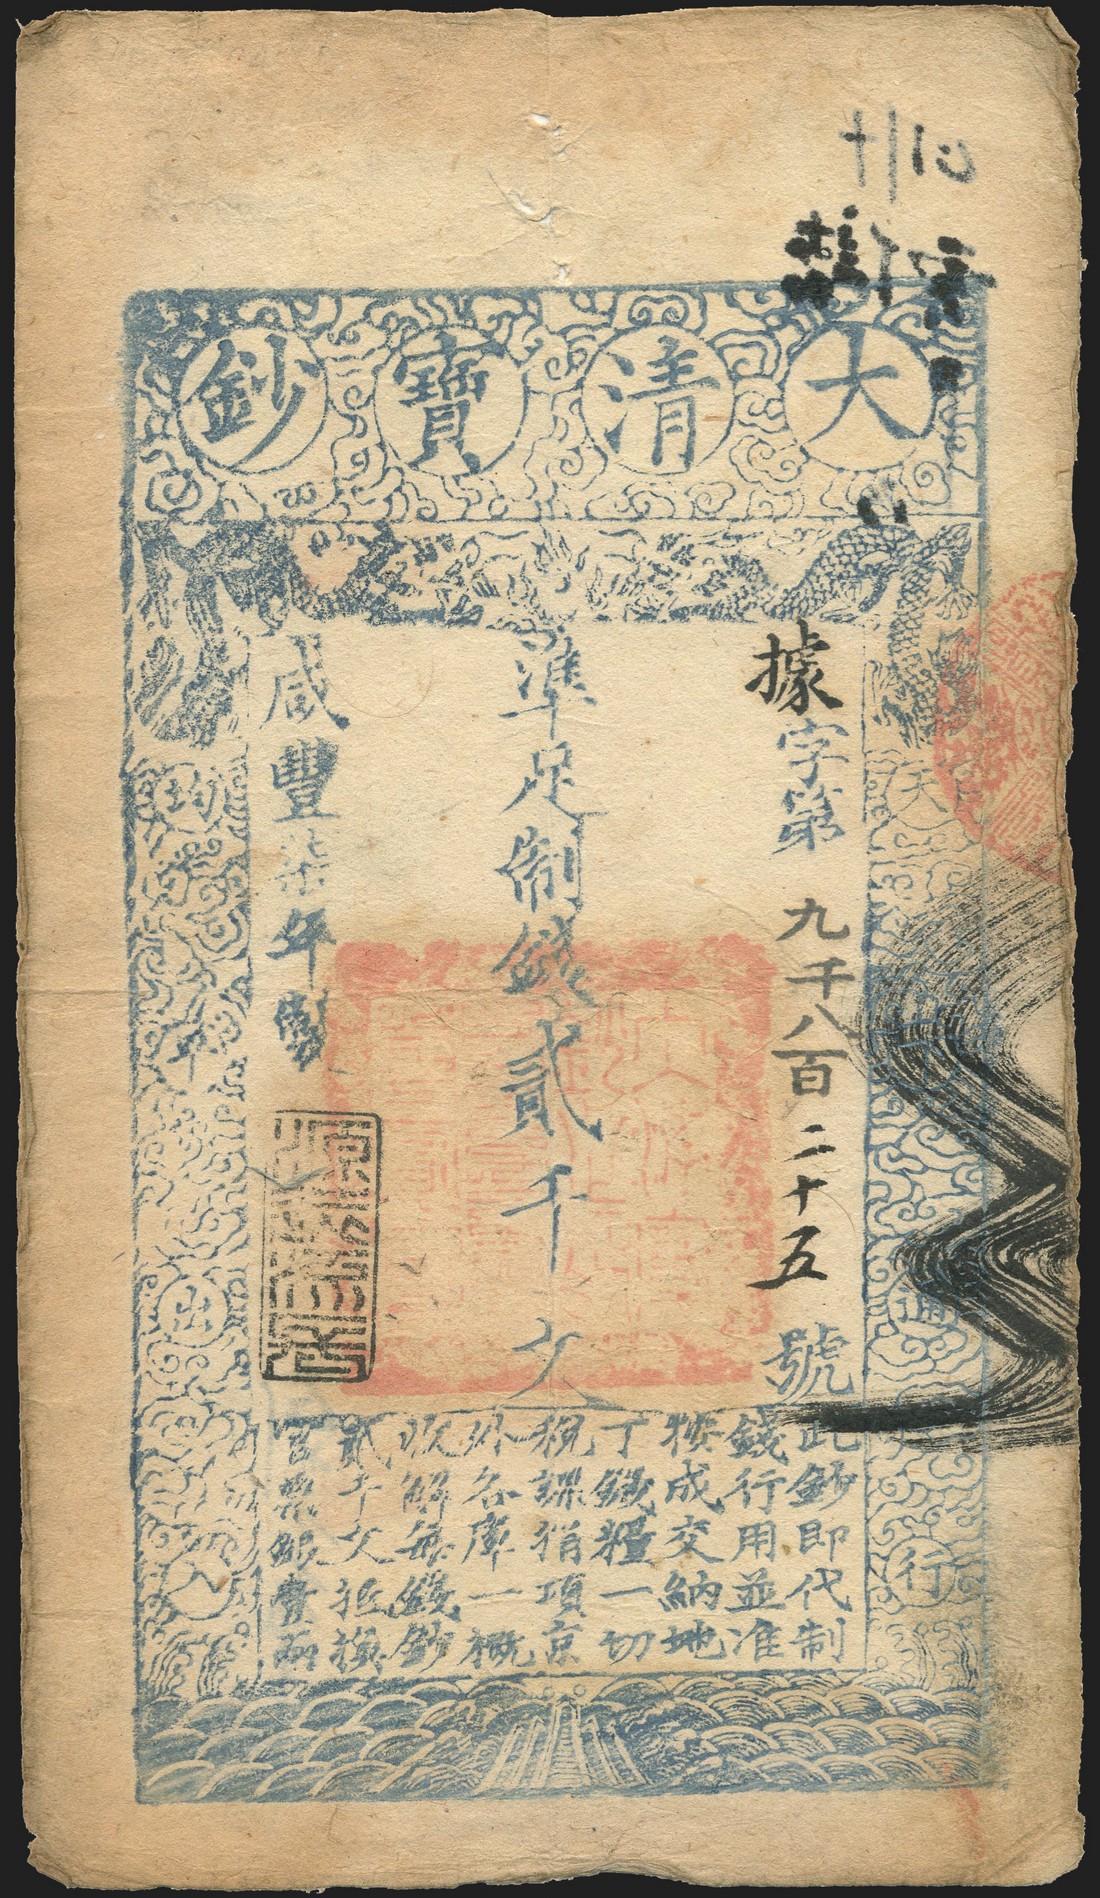 大清寶鈔
據字第 九千八百二十五 號
準足制錢貳千文
咸豐柒年製
天
通行
均
平出入
此鈔即代制
錢行用並准
按成交納地
丁錢糧一切
稅課捐項京
外各庫一概
收解每錢鈔
貳千文抵換
官票銀壹兩